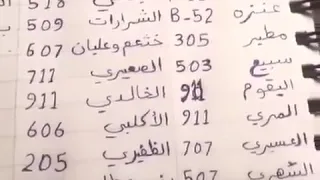 عنزه B-52 الشرارات 509
مطير 305 خثعم وعليان 607
سبيع 503 الصعيري 711
البقوم 911 الخالدي 911
المري 911 الأكلبي 606
العسيري 707 الظفيري 205
الشهري 507